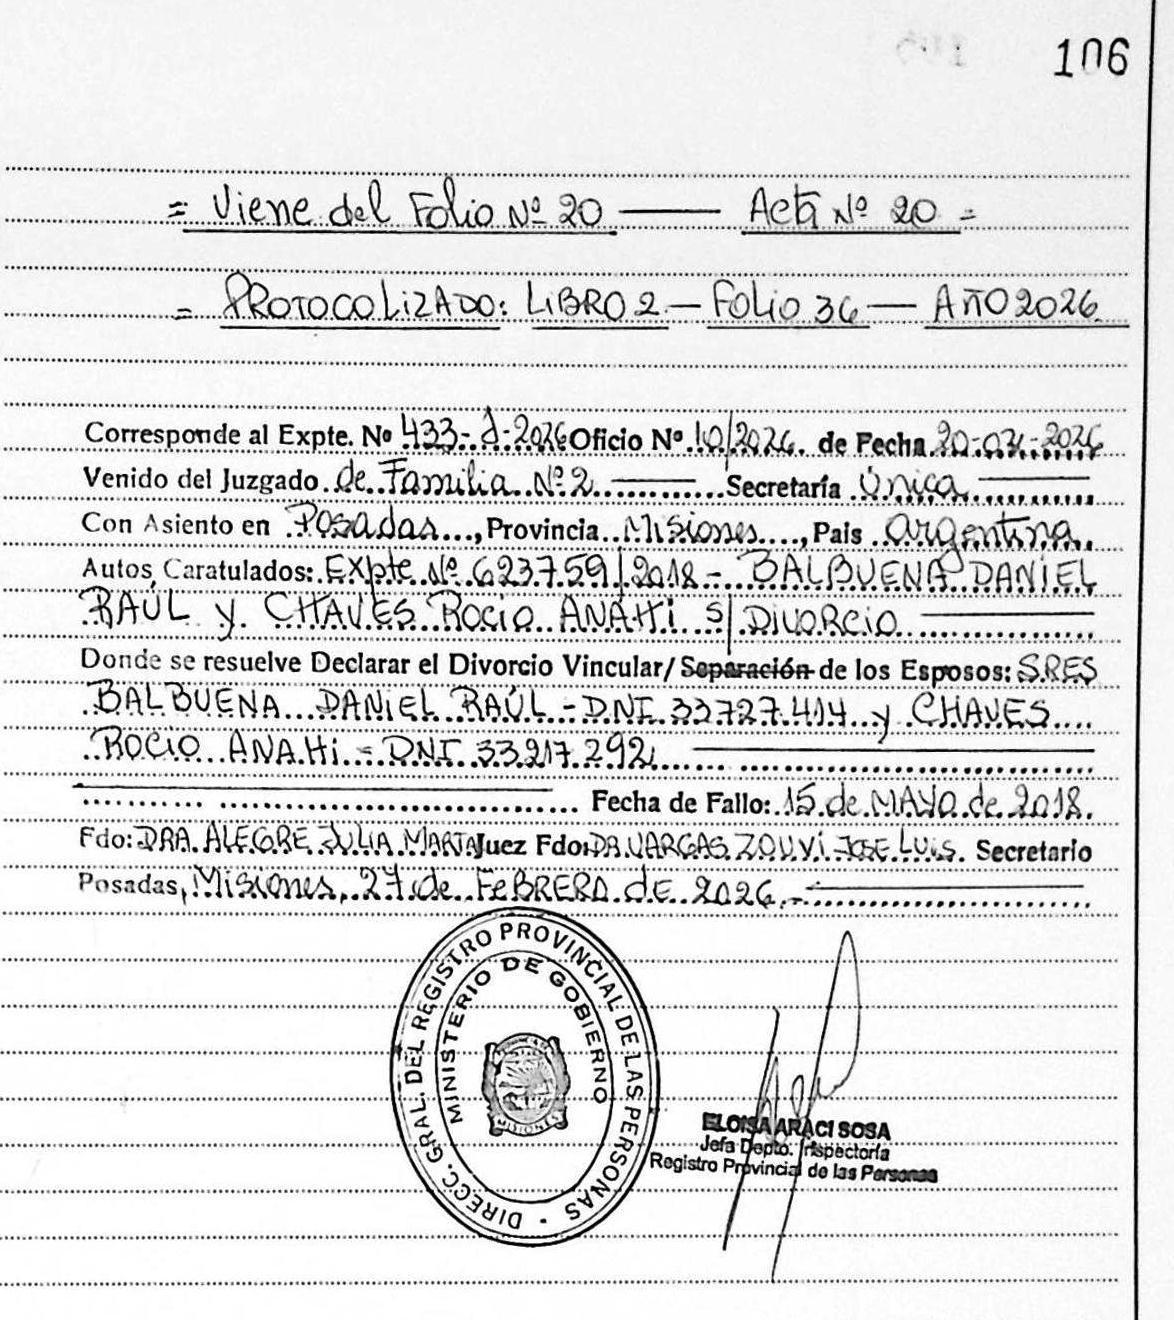 106
= Viene del Folio Nº 20 —— Acta Nº 20 =
= PROTOCOLIZADO: LIBRO 2 — FOLIO 36 — AÑO 2026
Corresponde al Expte. Nº 433-J-2026 Oficio Nº 10/2026 de Fecha 20-02-2026
Venido del Juzgado de Familia Nº 2 Secretaría Única
Con Asiento en Posadas, Provincia Misiones, Pais Argentina
Autos Caratulados: EXpte Nº 623759/2018 - BALBUENA DANIEL
RAÚL y CHAVES ROCIO ANAHI S/ DIVORCIO
Donde se resuelve Declarar el Divorcio Vincular/ Separación de los Esposos: SRES
BALBUENA DANIEL RAÚL - DNI 33727.414 y CHAVES
ROCIO ANAHI = DNI 33.217.292
Fecha de Fallo: 15 de MAYO de 2018.
Fdo: DRA. ALEGRE JULIA MARTA Juez Fdo: DR VARGAS ZOUVI JOSE LUIS. Secretario
Posadas, Misiones, 27 de FEBRERO DE 2026.-
DIRECC. GRAL. DEL REGISTRO PROVINCIAL DE LAS PERSONAS
MINISTERIO DE GOBIERNO
MISIONES
ELOISA ARACI SOSA
Jefa Depto. Inspectoría
Registro Provincial de las Personas